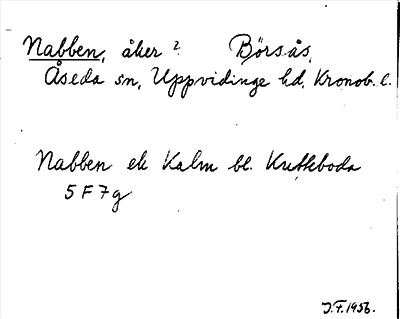 Nabben, åker ? Börsås,
Åseda sn, Uppvidinge hd, Kronob. l.
Nabben el Kalm bl. Kutteboda
5 F 7 g
J.F. 1956.